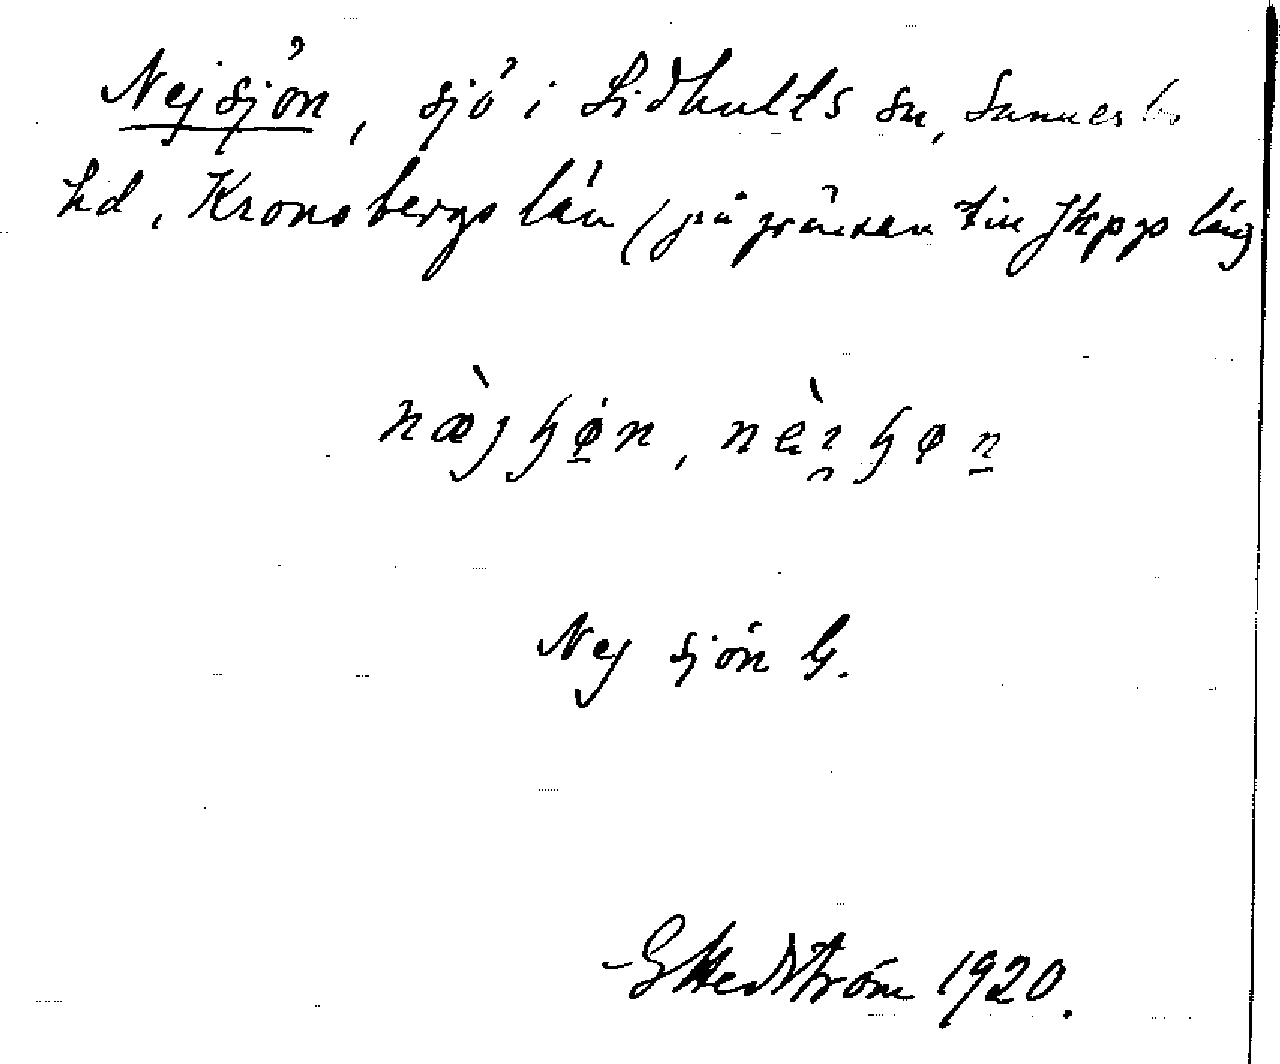 Nejsjön, sjö i Lidhults sn, Sunnerbo
hd, Kronobergs län (på gränsen till Jkpgs län)
næ̀jɧøn, nèɧøn
Nej sjön G.
G Hedström 1920.